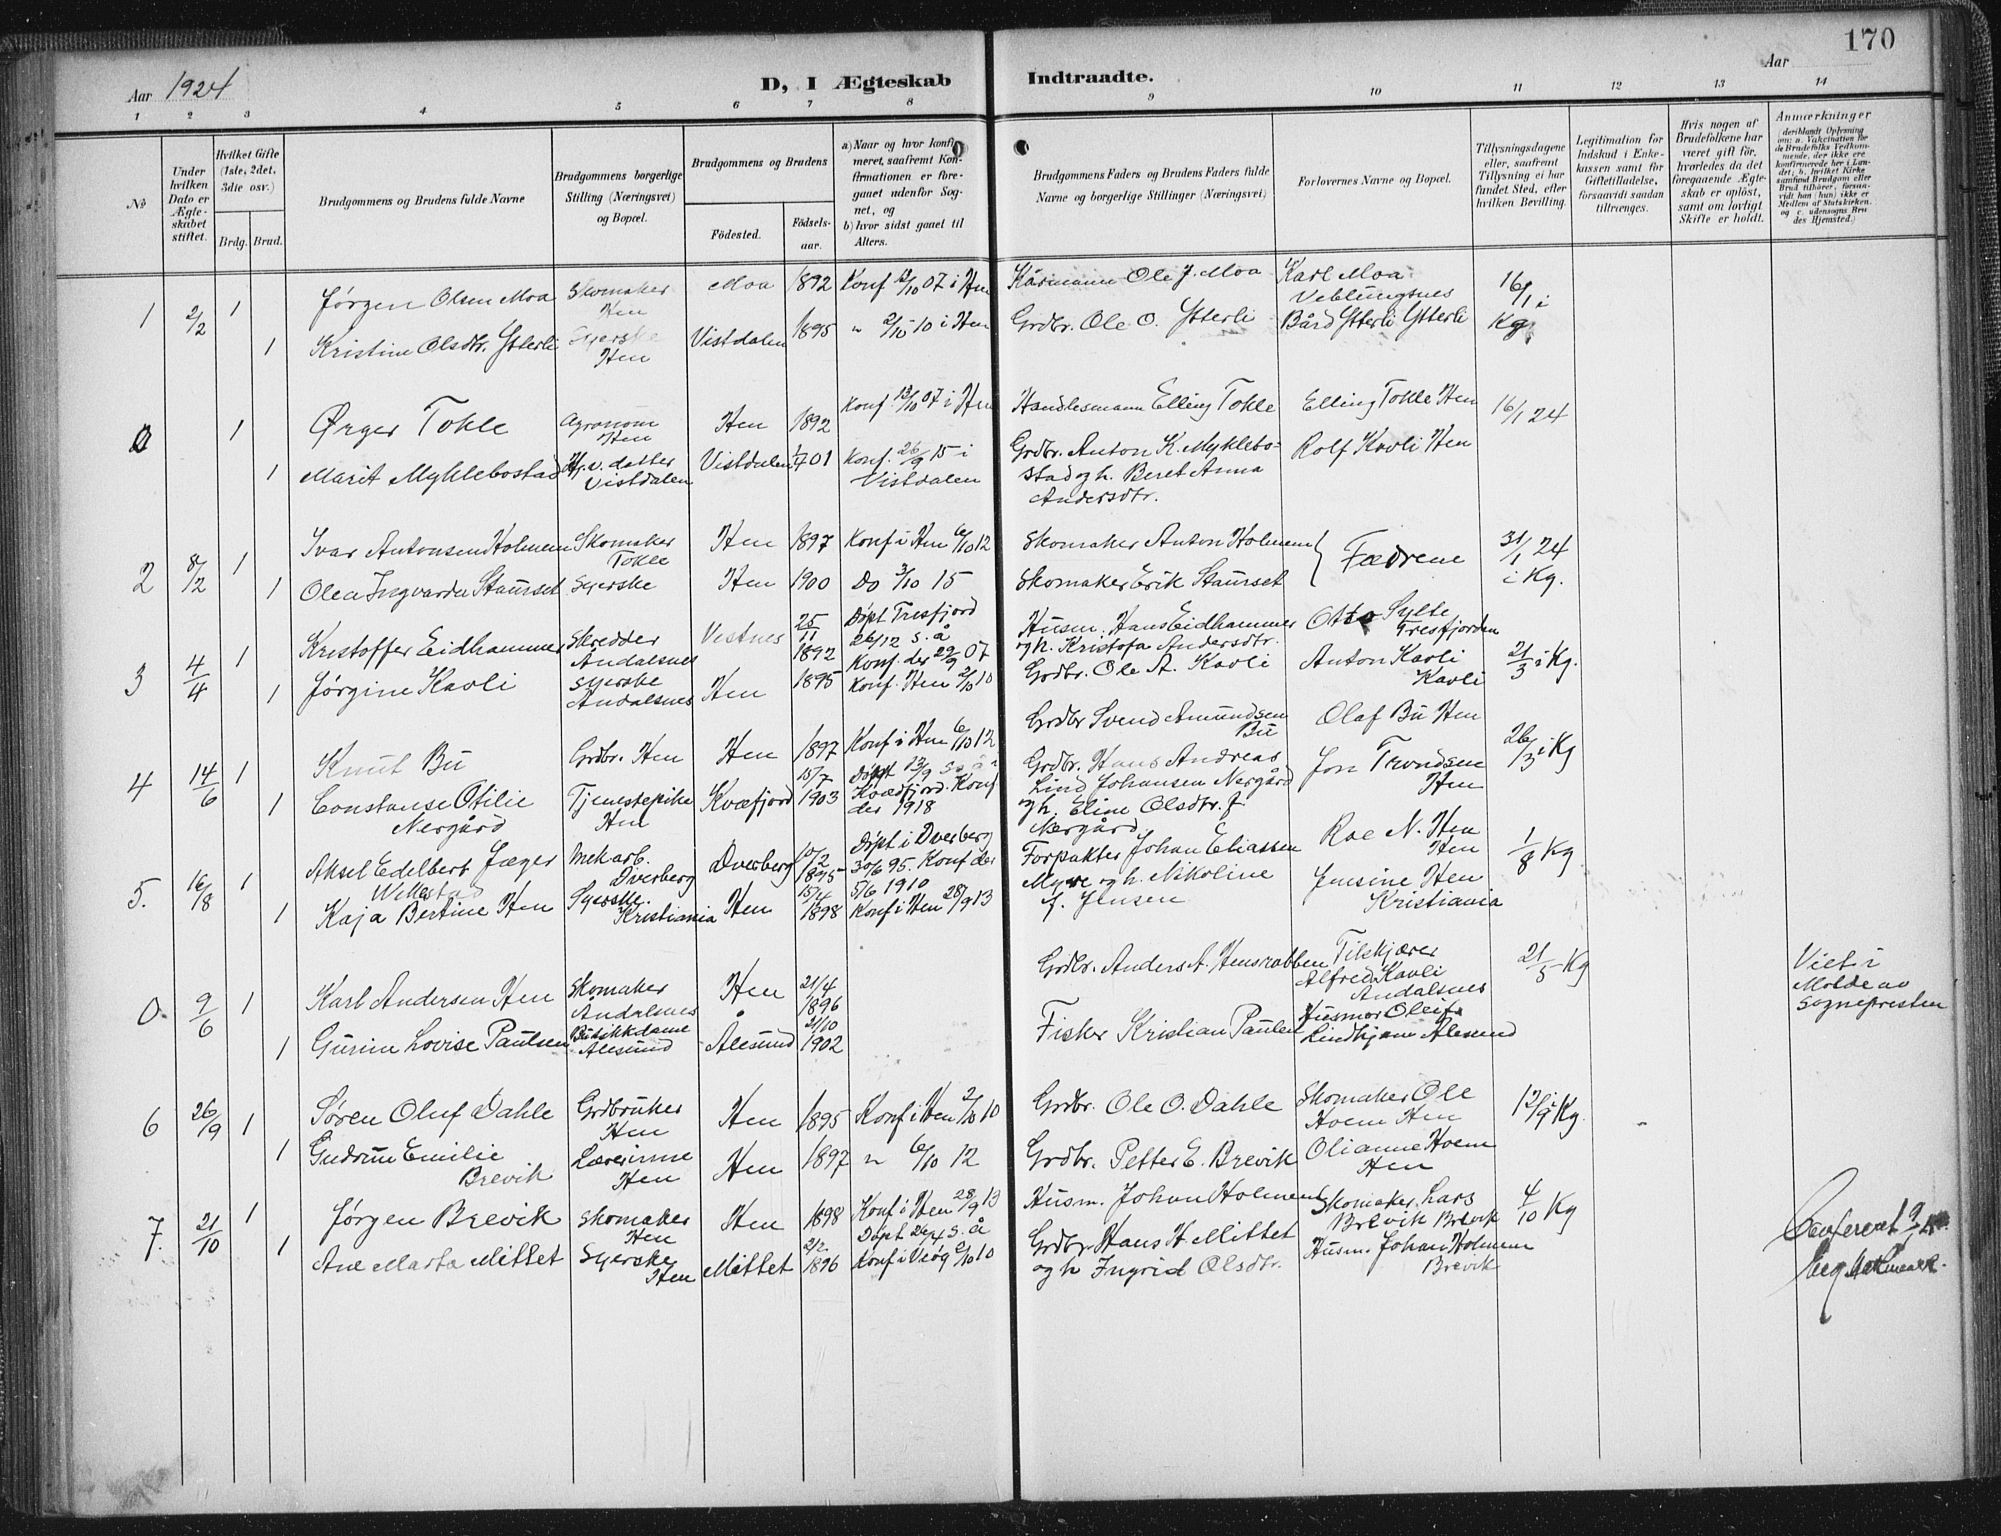 170
Aar 1924 D, I Ægteskab Indtraadte. Aar
1 2 3 4 5 6 7 8 9 10 11 12 13 14
No
Under hvilken Dato er Ægteskabet stiftet.
Hvilket Gifte (1ste, 2det, 3die osv.)
Brdg. Brud.
Brudgommens og Brudens fulde Navne
Brudgommens borgerlige Stilling (Næringsvei) og Bopæl.
Brudgommens og Brudens
Födested. Födselsaar.
a) Naar og hvor konfirmeret, saafremt Konfirmationen er foregaaet udenfor Sognet, og
b) hvor sidst gaaet til Alters.
Brudgommens Faders og Brudens Faders fulde Navne og borgerlige Stillinger (Næringsvei)
Forlovernes Navne og Bopæl.
Tillysningsdagene eller, saafremt Tillysning ei har fundet Sted, efter hvilken Bevilling.
Legitimation for Indskud i Enkekassen samt for Giftetilladelse, forsaavidt sandan tiltrænges.
Hvis nogen af Brudefolkene har været gift för, hvorledes da det foregaaende Ægteskab er oplöst, samt om lovligt Skifte er holdt.
Anmærkninger
(deriblandt Oplysning om: a. Vaksination for de Brudefolks Vedkommende, der ikke ere konfirmerede her i Landet; b. hvilket Kirkesamfund Brudgom eller Brud tilhører, forsaavidt han (hun) ikke er Medlem af Statskirken, og c. udensogns Brudes Hjemsted.)
1 2/2 1 Jørgen Olsen Moa Skomaker Hen Moa 1892 Konf 13/10 07 i Hen Kårmann Ole J. Moa Karl Moa Veblungsnes 16/1 i Kg.
1 Kristine Olsdtr. Ytterli Syerske Hen Vistdalen 1895 " 2/10 10 i Hen Grdbr. Ole O. Ytterli Bård Ytterli Ytterli
0 1 Ørger Tokle Agronom Hen Hen 1892 Konf. 13/10 07 i Hen Handlesmann Elling Tokle Elling Tokle Hen 16/1 24
1 Marit Myklebostad Gr.v. datter Vistdalen Vistdalen 1/7 01 Konf. 26/9 15 i Vistdalen Grdbr. Anton K. Myklebostad og h. Beret Anna Andersdtr. Rolf Kavli Hen
2 8/2 1 Ivar Antonsen Holmem Skomaker Tokle Hen 1897 Konf i Hen 6/10 12 Skomaker Anton Holmem } Fædrene 31/1 24 i Kg.
1 Olea Ingvarda Staurset Syerske Hen 1900 Do 3/10 15 Skomaker Erik Staurset
3 4/4 1 Kristoffer Eidhammer Skredder Åndalsnes Vestnes 25/11 1892 Døpt Tresfjord 26/12 s.å Konf. der 29/9 07 Husm. Hans Eidhammer og h. Kristofa Andersdtr. Otto Sylte Tresfjorden 21/3 i Kg.
1 Jørgine Kavli Syerske Åndalsnes Hen 1895 Konf. Hen 2/10 10 Grdbr. Ole A. Kavli Anton Kavli Kavli
4 14/6 1 Knut Bu Grdbr. Hen Hen 1897 Konf i Hen 6/10 12 Grdbr Svend Amundsen Bu Olaf Bu Hen 26/3 i Kg
1 Constanse Otilie Nergård Tjenestepike Hen Kvæfjord 15/7 1903 Døpt 13/9 s.å i Kvædfjord. Konf der 1918 Grdbr. Hans Andreas Lind Johansen Nergård og h. Eline Olsdtr. f. Nergård Jon Trondsen Hen
5. 16/8 1 Aksel Edelbert Jæger Mek arb. Dverberg Dverberg 10/2 1895 Døpt i Dverberg 30/6 95. Konf der 5/6 1910 Forpakter Johan Eliassen Myre og h. Nikoline f. Jensen Roe N. Hen Hen 1/8 Kg
1 Kaja Bertine Hen Syerske. Kristiania Hen 15/4 1898 Konf i Hen 28/9 13 Jensine Hen Kristiania
0. 9/6 1 Karl Andersen Hen Skomaker Åndalsnes Hen 21/4 1896 Grdbr. Anders A. Hensrabben Tilskjærer Alfred Kavli Åndalsnes 21/5 Kg Viet i Molde av Sognepresten
1 Gurine Lovise Paulsen Butikkdame Ålesund Ålesund 21/10 1902 Fisker Kristian Paulsen Husmor Oleif Lindkjøn Ålesund
6 26/9 1 Søren Oluf Dahle Grdbruker Hen Hen 1895 Konf i Hen 2/10 10 Grdbr. Ole O. Dahle Skomaker Ole Hoem Hen 12/9 i Kg.
1 Gudrun Emilie Brevik Lærerinne Hen Hen 1897 " 6/10 12 Grdbr. Petter E. Brevik Olianne Hoem Hen
7. 21/10 1 Jørgen Brevik Skomaker Hen Hen 1898 Konf i Hen 28/9 13 Husm. Johan Holmem Skomaker Lars Brevik Brevik 4/10 Kg
1 Ane Marta Mittet Syerske Hen Mittet 2/2 1896 Døpt 26/4 s. å Konf i Veøy 2/10 10 Grdbr. Hans H. Mittet og h Ingrid Olsdtr. Husm. Johan Holmem Brevik
Conferert